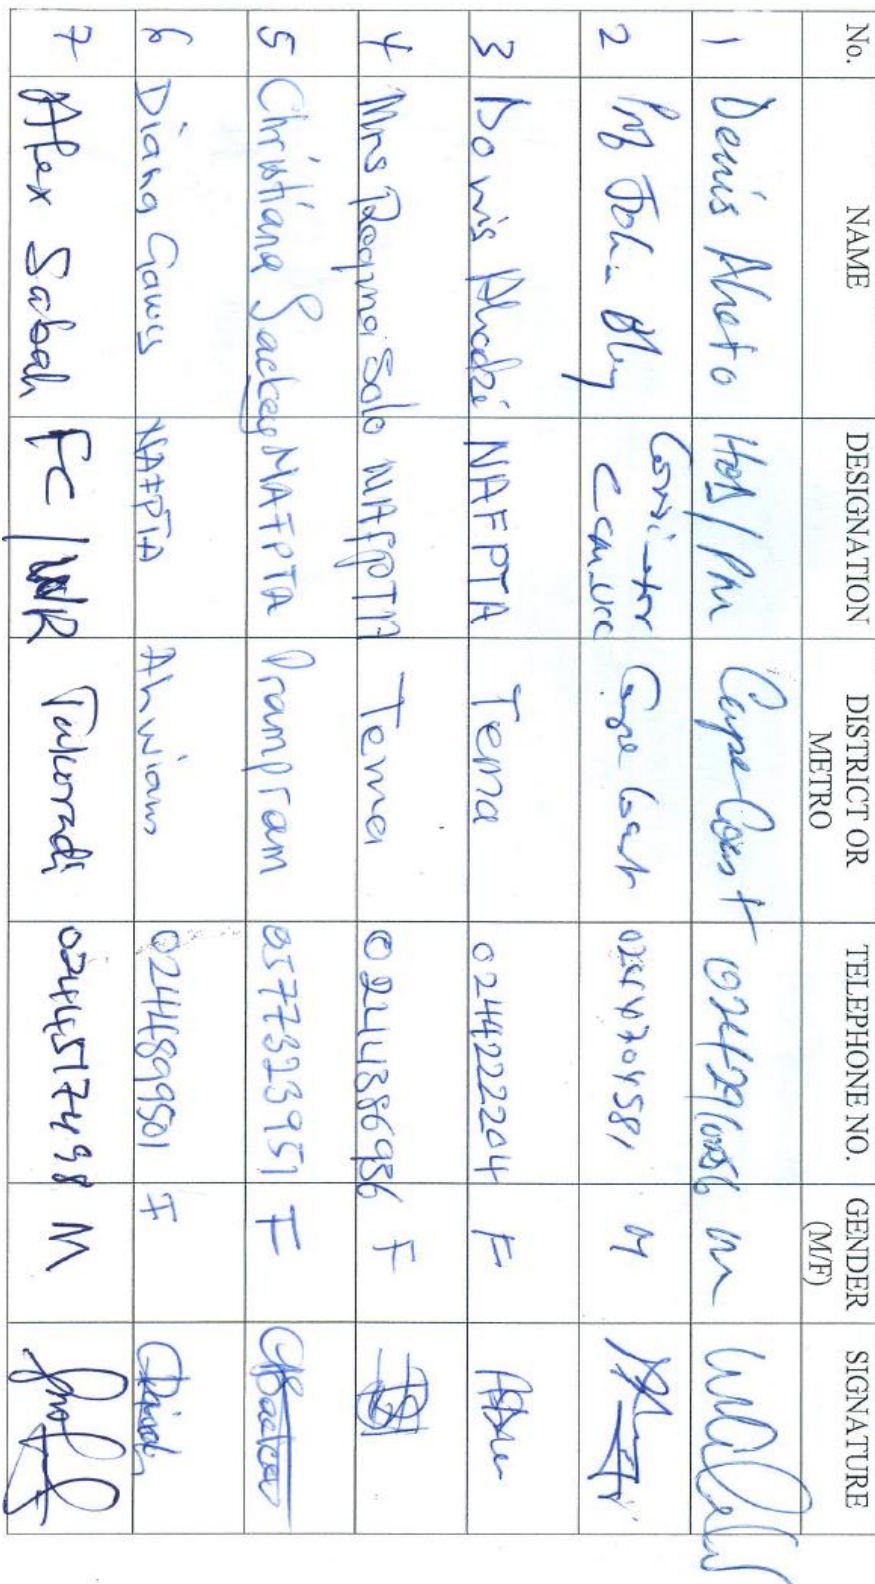 No. NAME DESIGNATION DISTRICT OR METRO TELEPHONE NO. GENDER (M/F) SIGNATURE
1 Denis Aheto HoD/PM Cape Coast m
2 Prof John Cape Coast M
3 Doris Ahadzi NAFPTA Tema 0244222204 F
4 Mrs Regina Solo NAFPTA Tema 0244386936 F
5 Christiana Sackey NAFPTA Prampram 0577323951 F
6 Diana Gawus NAFPTA Ahwiam 0244899501 F
7 Alex Sabah FC/WR Takoradi 0244517498 M